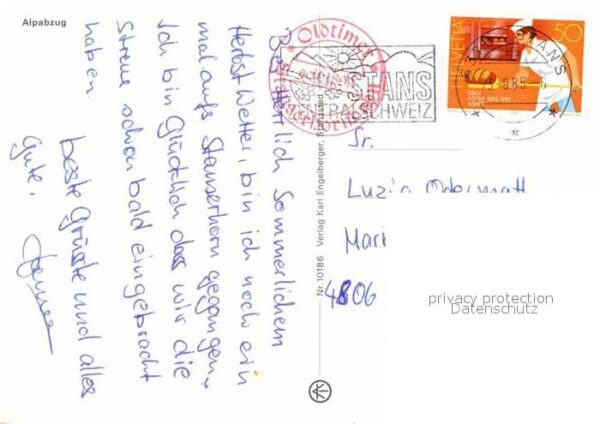 Alpabzug
Bei Herrlich Sommerlichem
Herbst Wetter, bin ich noch ein
mal aufs Stanserhorn gegangen.
Ich bin Glücklich dass wir die
Streue schon bald eingebracht
haben.
beste Grüsse und alles
Gute.
Nr. 10186 Verlag Karl Engelberger, Stansstad
Oldtimer
Stanserhorn
STANS
ZENTRALSCHWEIZ
HELVETIA 50
STANS
985-6
Sr.
Luzia Odermatt
Mari
4806
privacy protection
Datenschutz